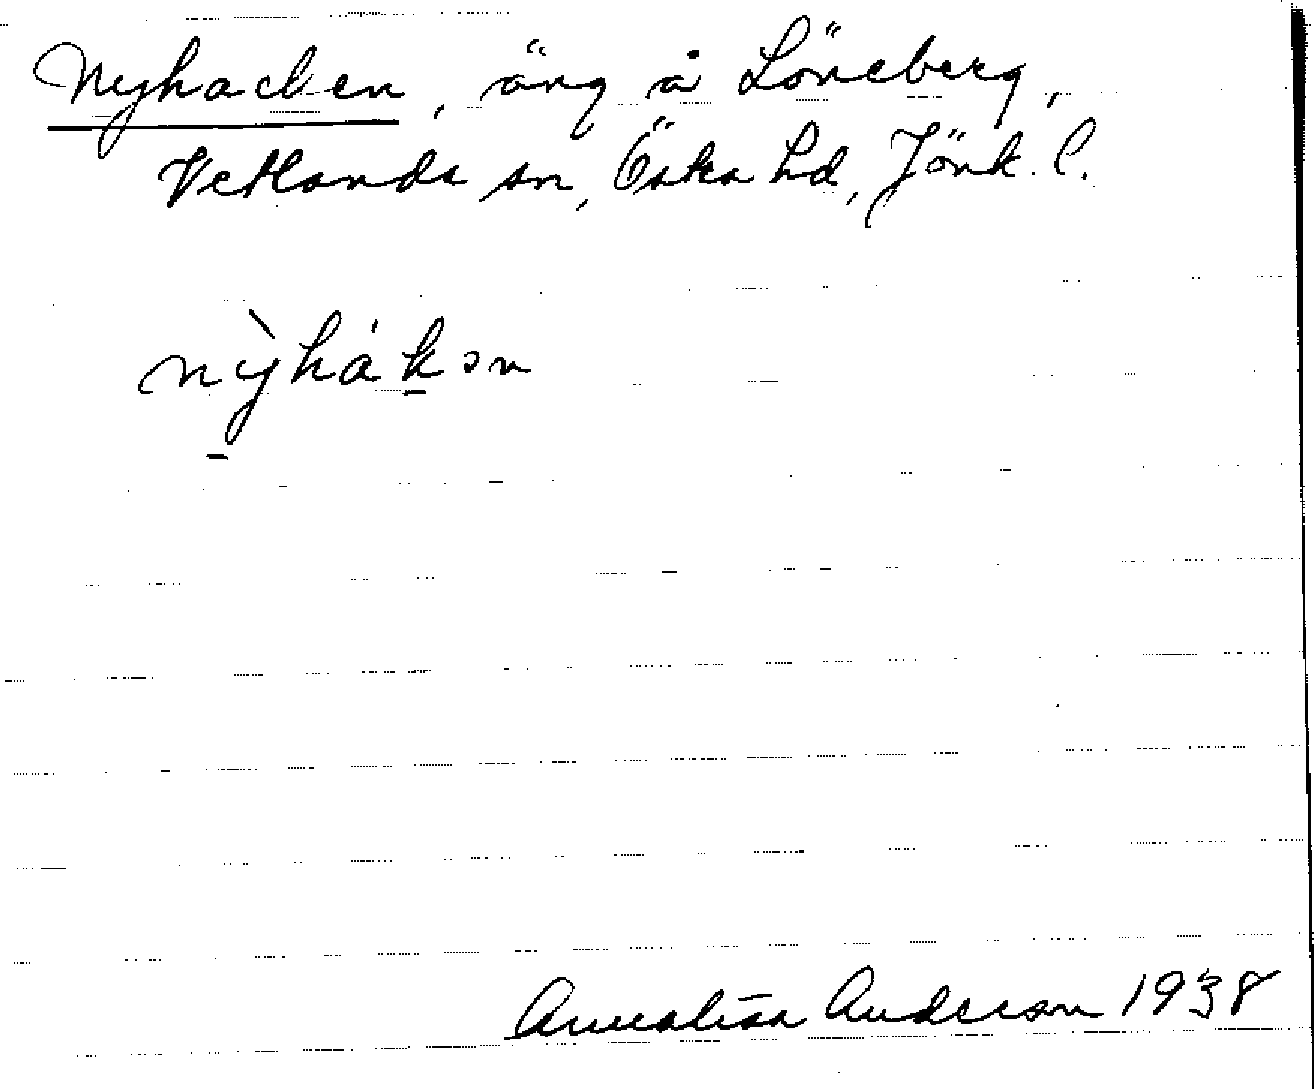 Nyhacken, äng å Löneberg,
Vetlanda sn, Östra hd, Jönk. l.
nỳhák̲ən
Annalisa Anderson 1938